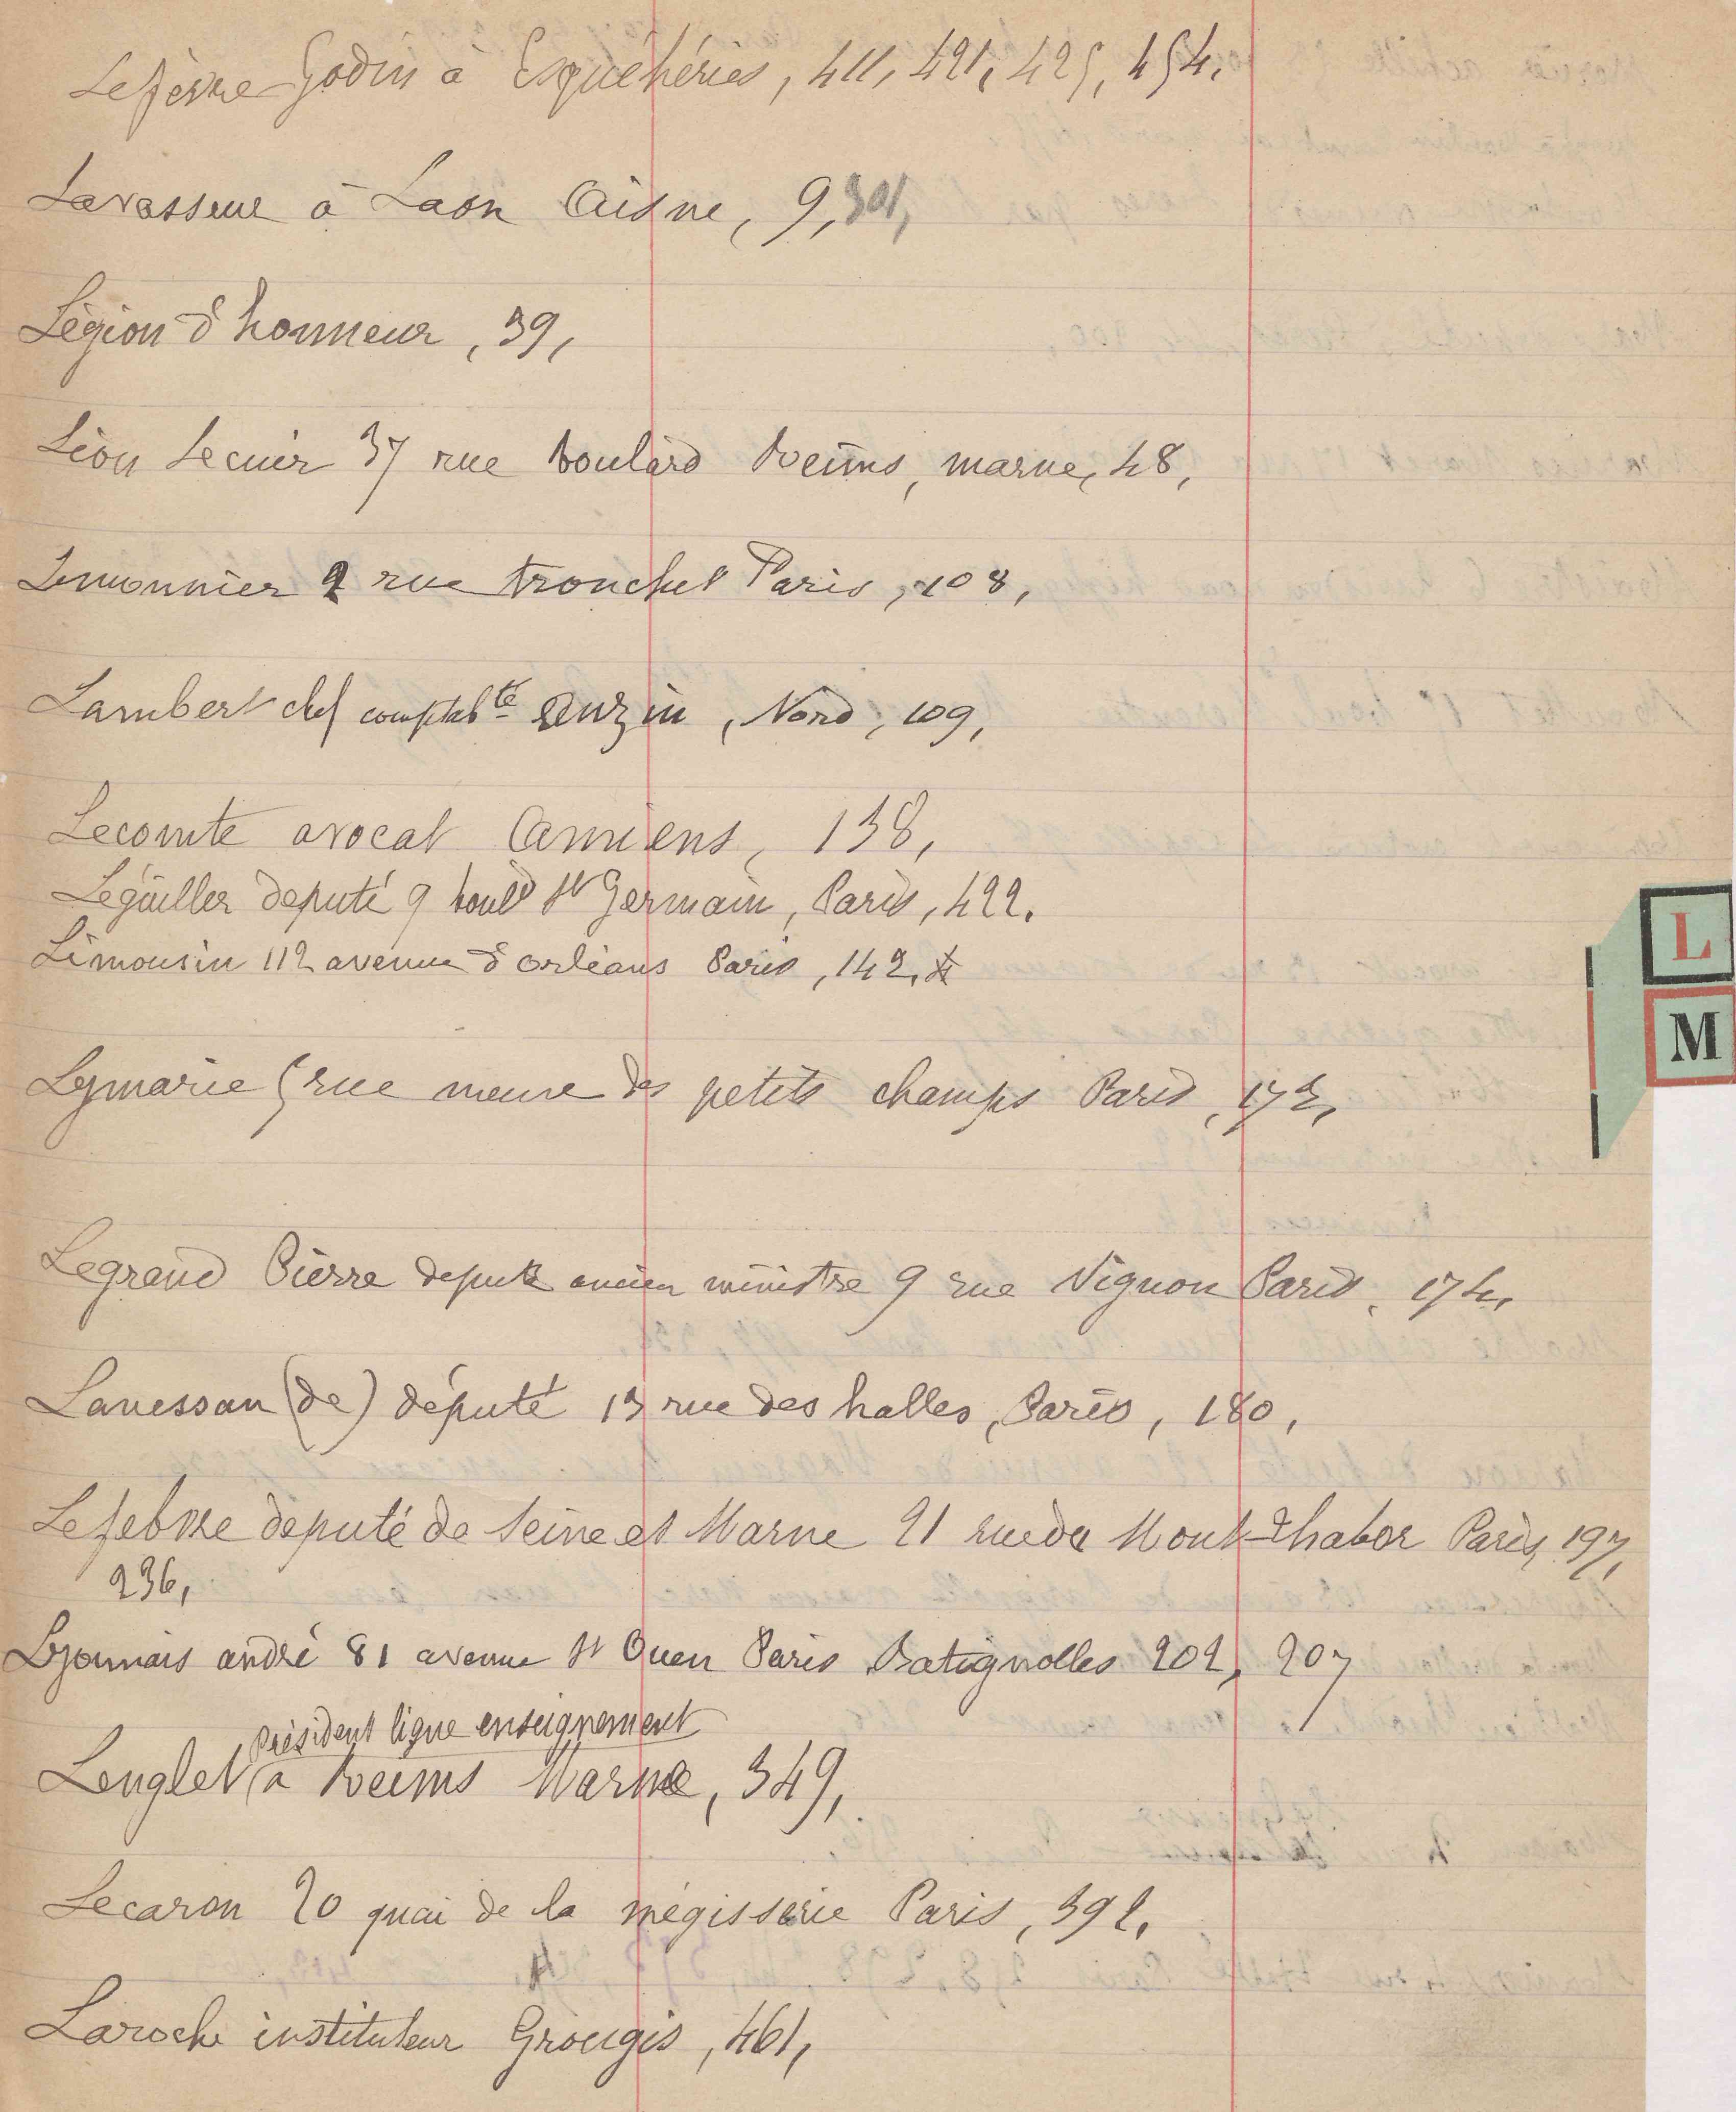 Lefèvre Godin à Esquéhéries, 411, 421, 425, 454.
Lavasseur à Laon Aisne, 9, 301,
Légion d'honneur, 39,
Léon Lecuir 37 rue boulard Reims, marne, 48,
Lemonnier 2 rue tronchet Paris, 108,
Lambert chef comptabté Anzin, Nord, 109,
Lecomte avocat Amiens, 138,
Legüiller député 9 bould St Germain, Paris, 422.
Limousin 112 avenue d'orléans Paris, 142,
Leymarie 5 rue neuve des petits champs Paris, 172,
Legrand Pierre député ancien ministre 9 rue Vignon Paris, 174,
Lanessan (de) député 13 rue des halles, Paris, 180,
Lefebvre député de Seine et Marne 21 rue du Mont-Thabor Paris, 197,
236,
Lyonnais andré 81 avenue St Ouen Paris Batignolles 202, 207
président ligue enseignement
Lenglet à Reims Marne, 349,
Lecaron 20 quai de la mégisserie Paris, 392.
Laroche instituteur Grougis, 461,
L
M